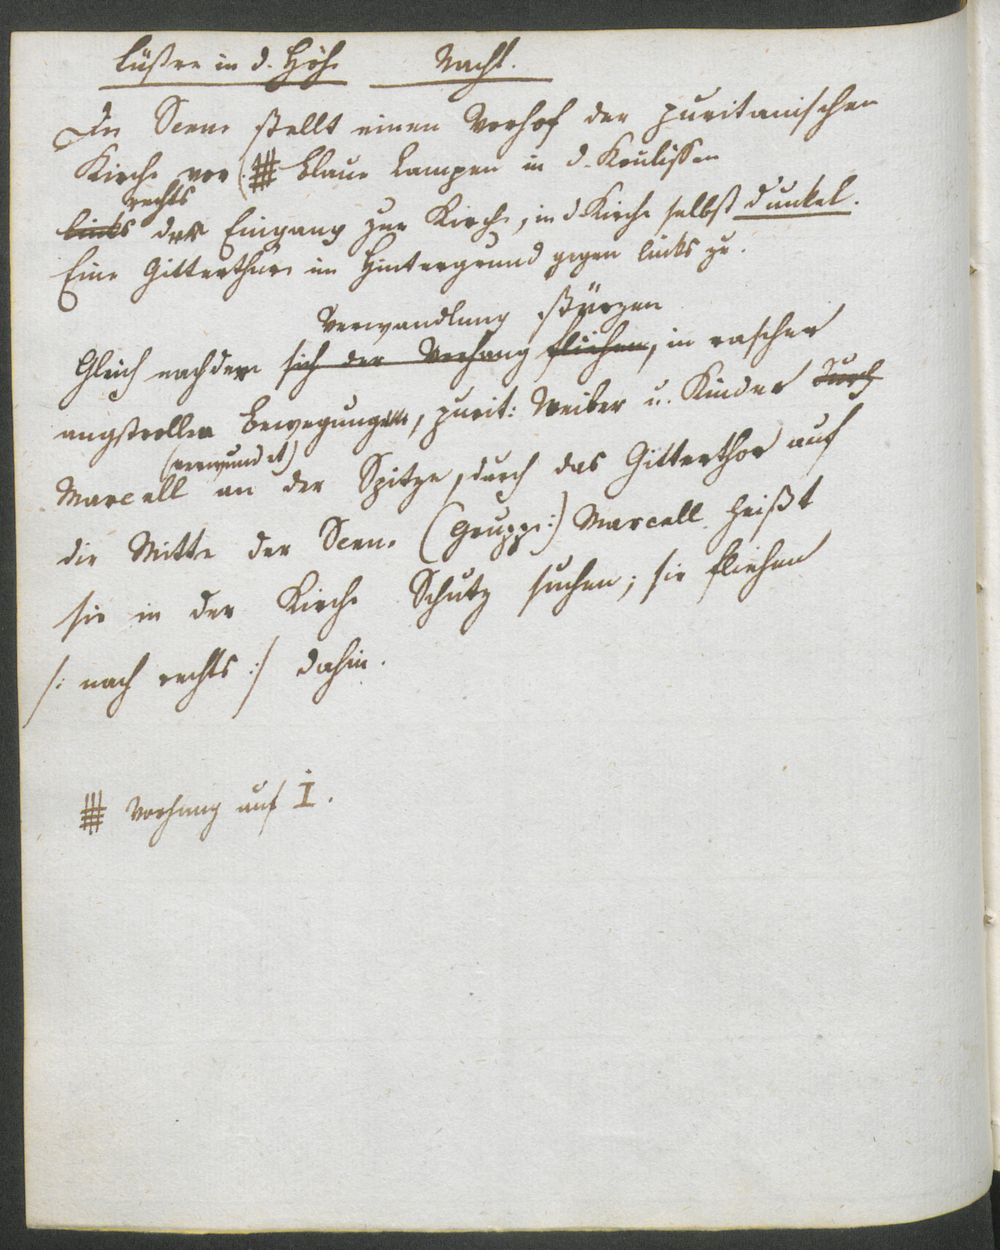 Lüstre in d. Höhe Nacht.
Die Scene stellt einen Vorhof der puritanischen
Kirche vor (⧻ blaue Lampen in d. Koulissen
rechts
links der Eingang zur Kirche, in d Kirche selbst dunkel.
Eine Gitterthüre im Hintergrund gegen links zu.
Verwandlung stürzen
Gleich nachdem sich der Vorhang fliehen, in rascher
angstvoller Bewegung, purit: Weiber u. Kinder durch
(verwundet)
Marcell an der Spitze, durch das Gitterthor auf
die Mitte der Scene (Gruppe:) Marcell heißt
sie in der Kirche Schutz suchen; sie fliehen
/: nach rechts :/ dahin.
⧻ Vorhang auf I.